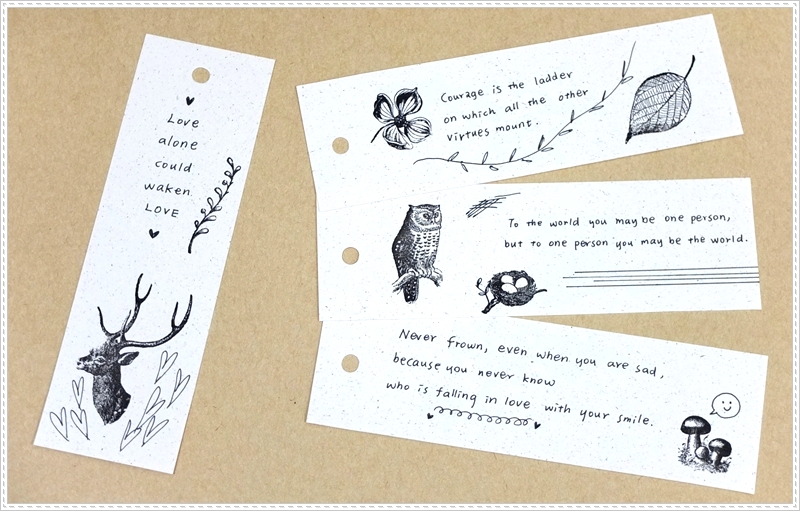 Love
alone
could
waken
LOVE
Courage is the ladder
on which all the other
virtues mount.
To the world you may be one person,
but to one person you may be the world.
Never frown, even when you are sad,
because you never know
who is falling in love with your smile.